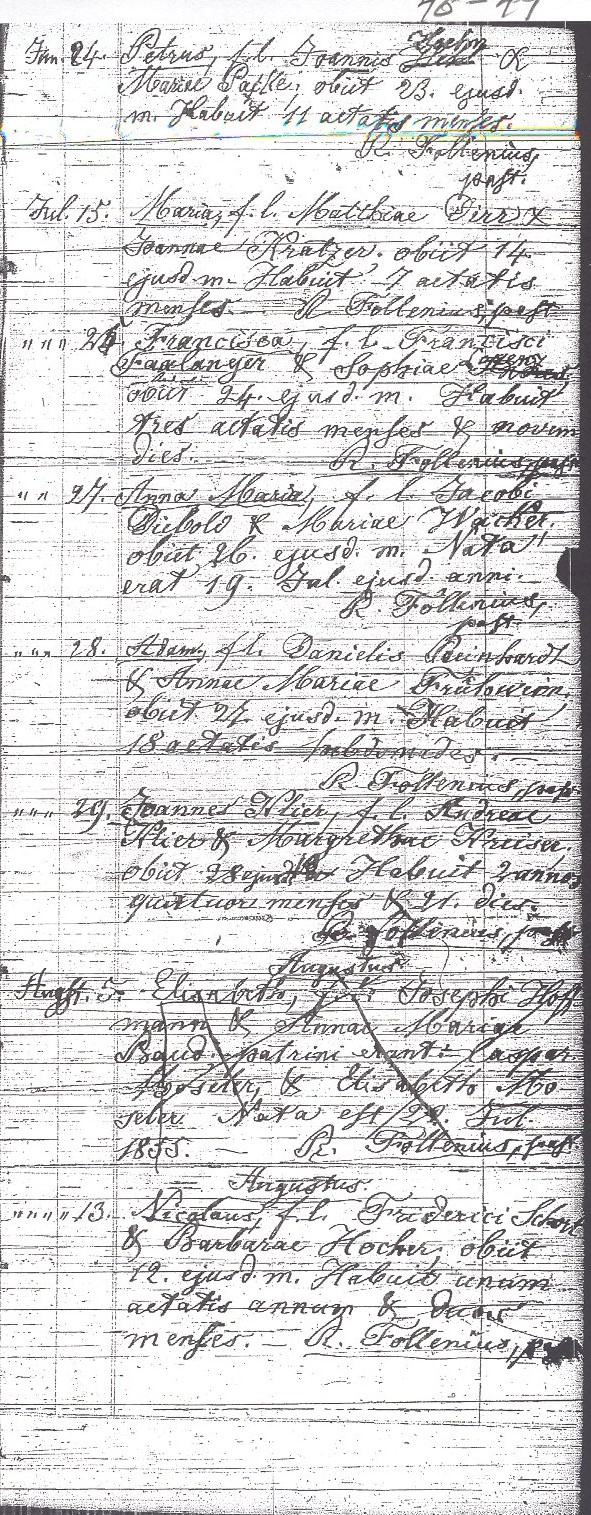 48-49
Jun. 24. Petrus, f. l. Joannis Hoehn &
Mariae Papke, obiit 23. ejusd.
m. Habuit 11 aetatis menses.
R. Follenius,
past.
Jul. 15. Maria, f. l. Matthiae Dirr &
Joannae Kratzer. obiit 14
ejusd. m. Habuit 7 aetatis
menses. — R. Follenius, past
" " " 25 Francisca, f. l. Francisci
Faalanger & Sophiae
obiit 24. ejusd. m. Habuit
tres aetatis menses & novem
dies. R. Follenius, past
" " 27. Anna Maria, f. l. Jacobi
Diebold & Mariae Wacker.
obiit 26. ejusd. m. Nata
erat 19. Jul. ejusd. anni. —
R. Follenius,
past.
" " " 28. Adam, f. l. Danielis Reinhardt
& Annae Mariae
obiit 27. ejusd. m. Habuit
18 aetatis hebdomides. —
R Follenius, past
" " " 29. Joannes Klier, f. l. Andreae
Klier & Margrethae Kreiser.
obiit 28 ejusd. Habuit 2 annos,
quatuor menses & 21. dies.
R. Follenius, past
Augustus
Augst. 5. Elisabeth, f. l. Josephi Hoff
mann & Annae Mariae
Baud. patrini erant: Caspar
Moseler, & Elisabeth Mo
seler Nata est Jul.
1855. — R. Follenius, past.
Augustus.
" " " " 13. Nicolaus, f. l. Friderici
& Barbarae Hocher, obiit
12. ejusd. m. Habuit unum
aetatis annum & duos
menses. — R. Follenius,